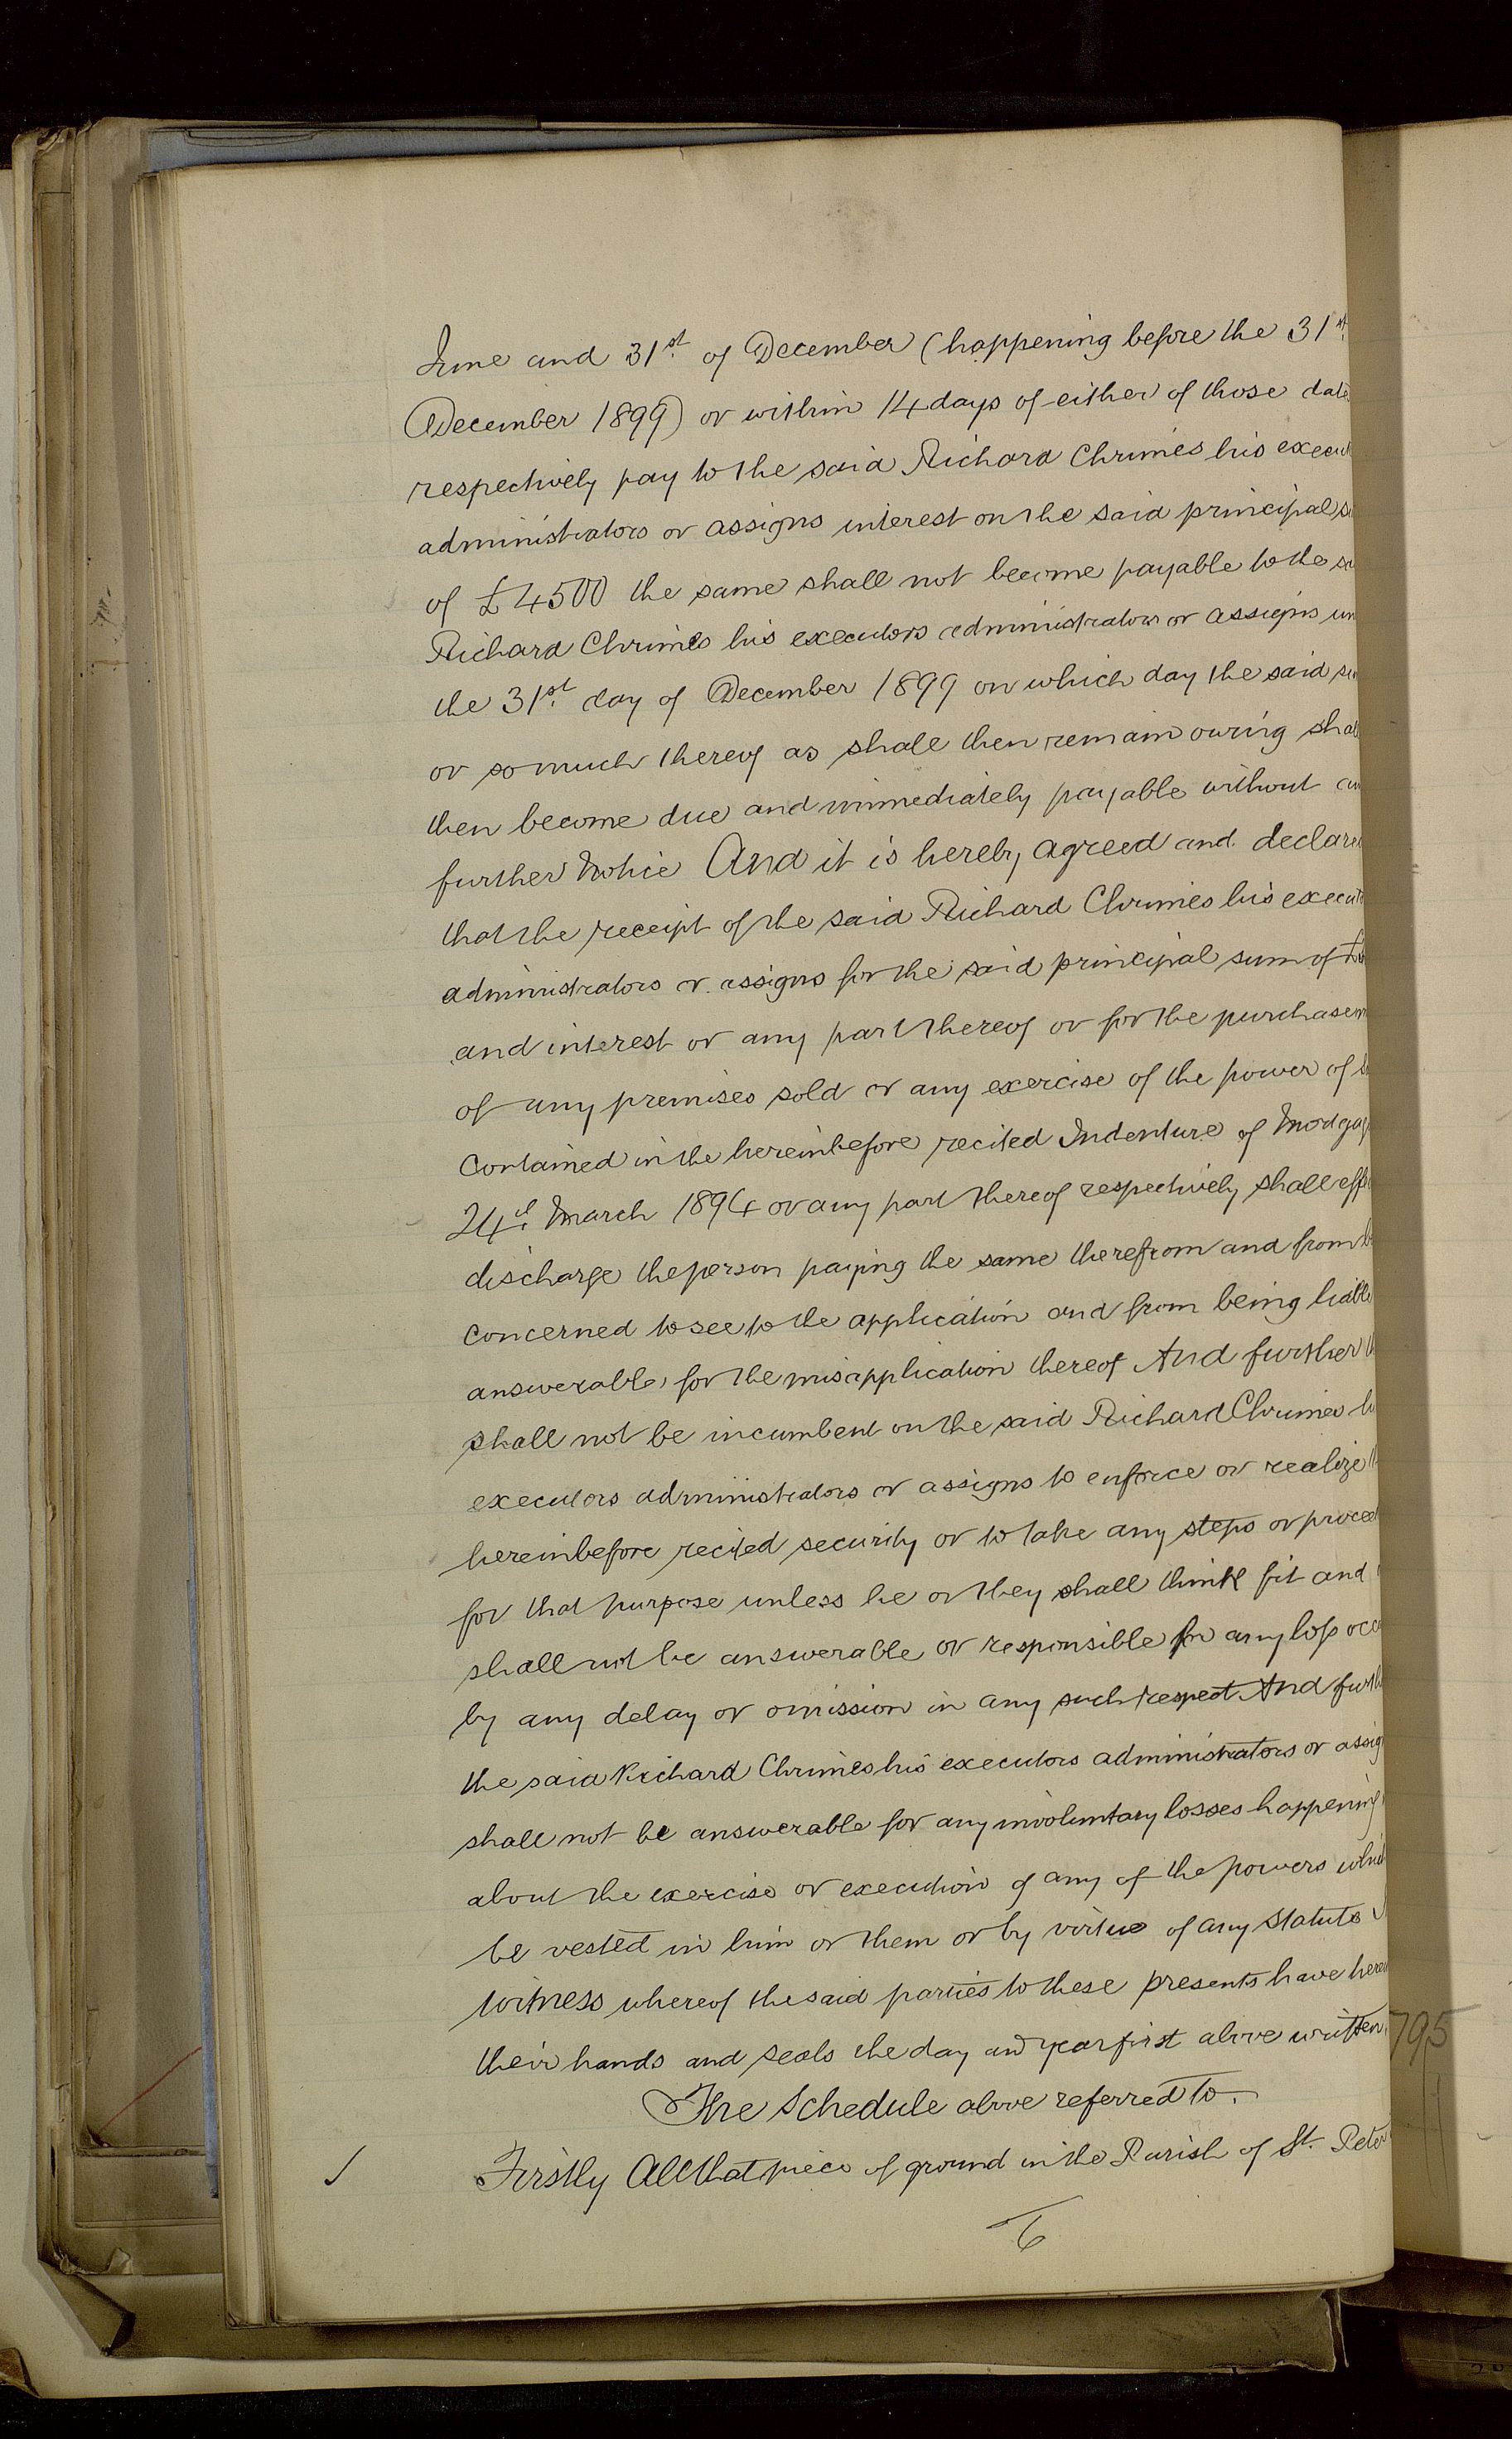 June and 31st. of December (happening before the 31st.
December 1899) or within 14 days of either of those date
respectively pay to the said Richard Chrimes his execut
administrators or assigns interest on the said principal s
of £4500 the same shall not become payable to the sa
Richard Chrimes his executors administrators or assigns un
the 31st. day of December 1899 on which day the said su
or so much thereof as shall then remain owing shal
then become due and immediately payable without an
further Notice And it is hereby agreed and declared
that the receipt of the said Richard Chrimes his execut
administrators or assigns for the said principal sum of
and interest or any part thereof or for the purchase m
of any premises sold or any exercise of the power of s
contained in the hereinbefore recited Indenture of Mortgag
24th March 1894 or any part thereof respectively shall eff
discharge the person paying the same therefrom and from b
concerned to see to the application and from being liable
answerable for the misapplication thereof And further th
shall not be incumbent on the said Richard Chrimes hi
executors administrators or assigns to enforce or realize th
hereinbefore recited security or to take any steps or proceed
for that purpose unless he or they shall think fit and
shall not be answerable or responsible for any loss occ
by any delay or omission in any such respect And furth
the said Richard Chrimes his executors administrators or assig
shall not be answerable for any involuntary losses happening
about the exercise or execution of any of the powers which
be vested in him or them or by virtue of any Statute
witness whereof the said parties to these presents have hereu
their hands and seals the day and year first above written
The Schedule above referred to.
Firstly All that piece of ground in the Parish of St. Peter
795